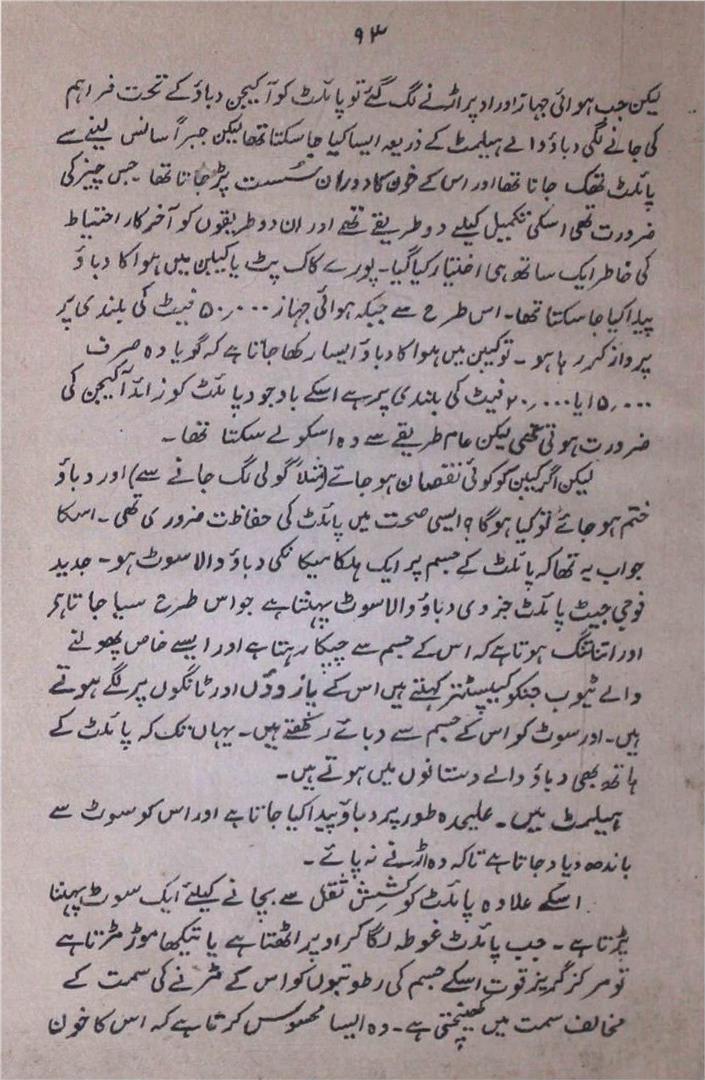 ۹۳
لیکن جب ہوائی جہاز اور اوپر اڑنے لگ گئے تو پائلٹ کو آکیجن دباؤ کے تحت فراہم
کی جانے لگی دباؤ والے ہیلمٹ کے ذریعہ ایسا کیا جاسکتا تھا لیکن جبراً سانس لینے سے
پائلٹ تھک جاتا تھا اور اس کے خون کا دوران سُست پڑ جاتا تھا۔ جس چیز کی
ضرورت تھی اسکی تکمیل کیلئے دو طریقے تھے اور ان دو طریقوں کو آخر کار احتیاط
کی خاطر ایک ساتھ ہی اختیار کیا گیا۔ پورے کاک پٹ یا کیبن میں ہوا کا دباؤ
پیدا کیا جا سکتا تھا۔ اس طرح سے جبکہ ہوائی جہاز ۵۰٫۰۰۰ فیٹ کی بلندی پر
پرواز کر رہا ہو۔ تو کیبن میں ہوا کا دباؤ ایسا رکھا جاتا ہے کہ گویا وہ صرف
۱۵٫۰۰۰ یا ۲۰٫۰۰۰ فیٹ کی بلندی پر ہے اسکے باوجود پائلٹ کو زائد آکیجن کی
ضرورت ہوتی تھی لیکن عام طریقے سے وہ اسکو لے سکتا تھا۔
لیکن اگر کیبن کو کوئی نقصان ہو جائے (مثلاً گولی لگ جانے سے) اور دباؤ
ختم ہو جائے تو کیا ہوگا؟ ایسی صحت میں پائلٹ کی حفاظت ضروری تھی۔ اسکا
جواب یہ تھا کہ پائلٹ کے جسم پر ایک ہلکا میکانکی دباؤ والا سوٹ ہو۔ جدید
فوجی جیٹ پائلٹ جزوی دباؤ والا سوٹ پہنتا ہے جو اس طرح سیا جاتا ہے
اور اتنا تنگ ہوتا ہے کہ اس کے جسم سے چپکا رہتا ہے اور ایسے خاص پھولنے
والے ٹیوب جنکو کیپسٹنز کہتے ہیں اس کے بازوؤں اور ٹانگوں پر لگے ہوتے
ہیں۔ اور سوٹ کو اس کے جسم سے دبائے رکھتے ہیں۔ یہاں تک کہ پائلٹ کے
ہاتھ بھی دباؤ والے دستانوں میں ہوتے ہیں۔
ہیلمٹ میں۔ علیحدہ طور پر دباؤ پیدا کیا جاتا ہے اور اس کو سوٹ سے
باندھ دیا دجاتا ہے تاکہ وہ اڑنے نہ پائے۔
اسکے علاوہ پائلٹ کو کشِش ثقل سے بچانے کیلئے ایک سوٹ پہننا
پڑتا ہے۔ جب پائلٹ غوطہ لگا کر اوپر اٹھتا ہے یا تیکھا موڑ مڑتا ہے
تو مرکز گریز قوت اسکے جسم کی رطوبتوں کو اس کے مڑنے کی سمت کے
مخالف سمت میں کھینچتی ہے۔ وہ ایسا محسوس کرتا ہے کہ اس کا خون